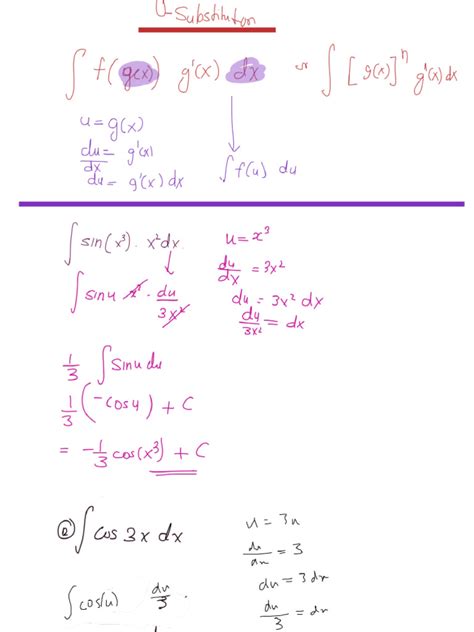 U-Substitution
∫ f(g(x)) g'(x) dx or ∫ [g(x)]^n g'(x) dx
u = g(x)
du/dx = g'(x)
du = g'(x) dx
∫ f(u) du
∫ sin(x³) · x² dx
u = x³
du/dx = 3x²
du = 3x² dx
du/3x² = dx
∫ sin u x² · du/3x²
1/3 ∫ sin u du
1/3 (-cos u) + C
= -1/3 cos(x³) + C
@ ∫ cos 3x dx
u = 3x
du/dx = 3
du = 3 dx
du/3 = dx
∫ cos(u) du/3 .